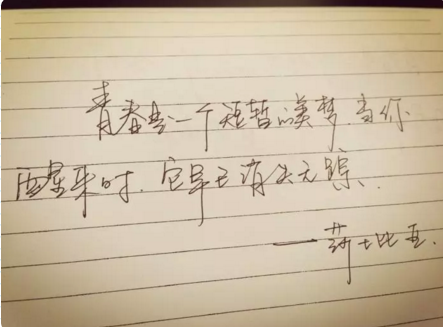 青春是一个短暂的美梦,当你
醒来时,它早已消失无踪、
一莎士比亚.